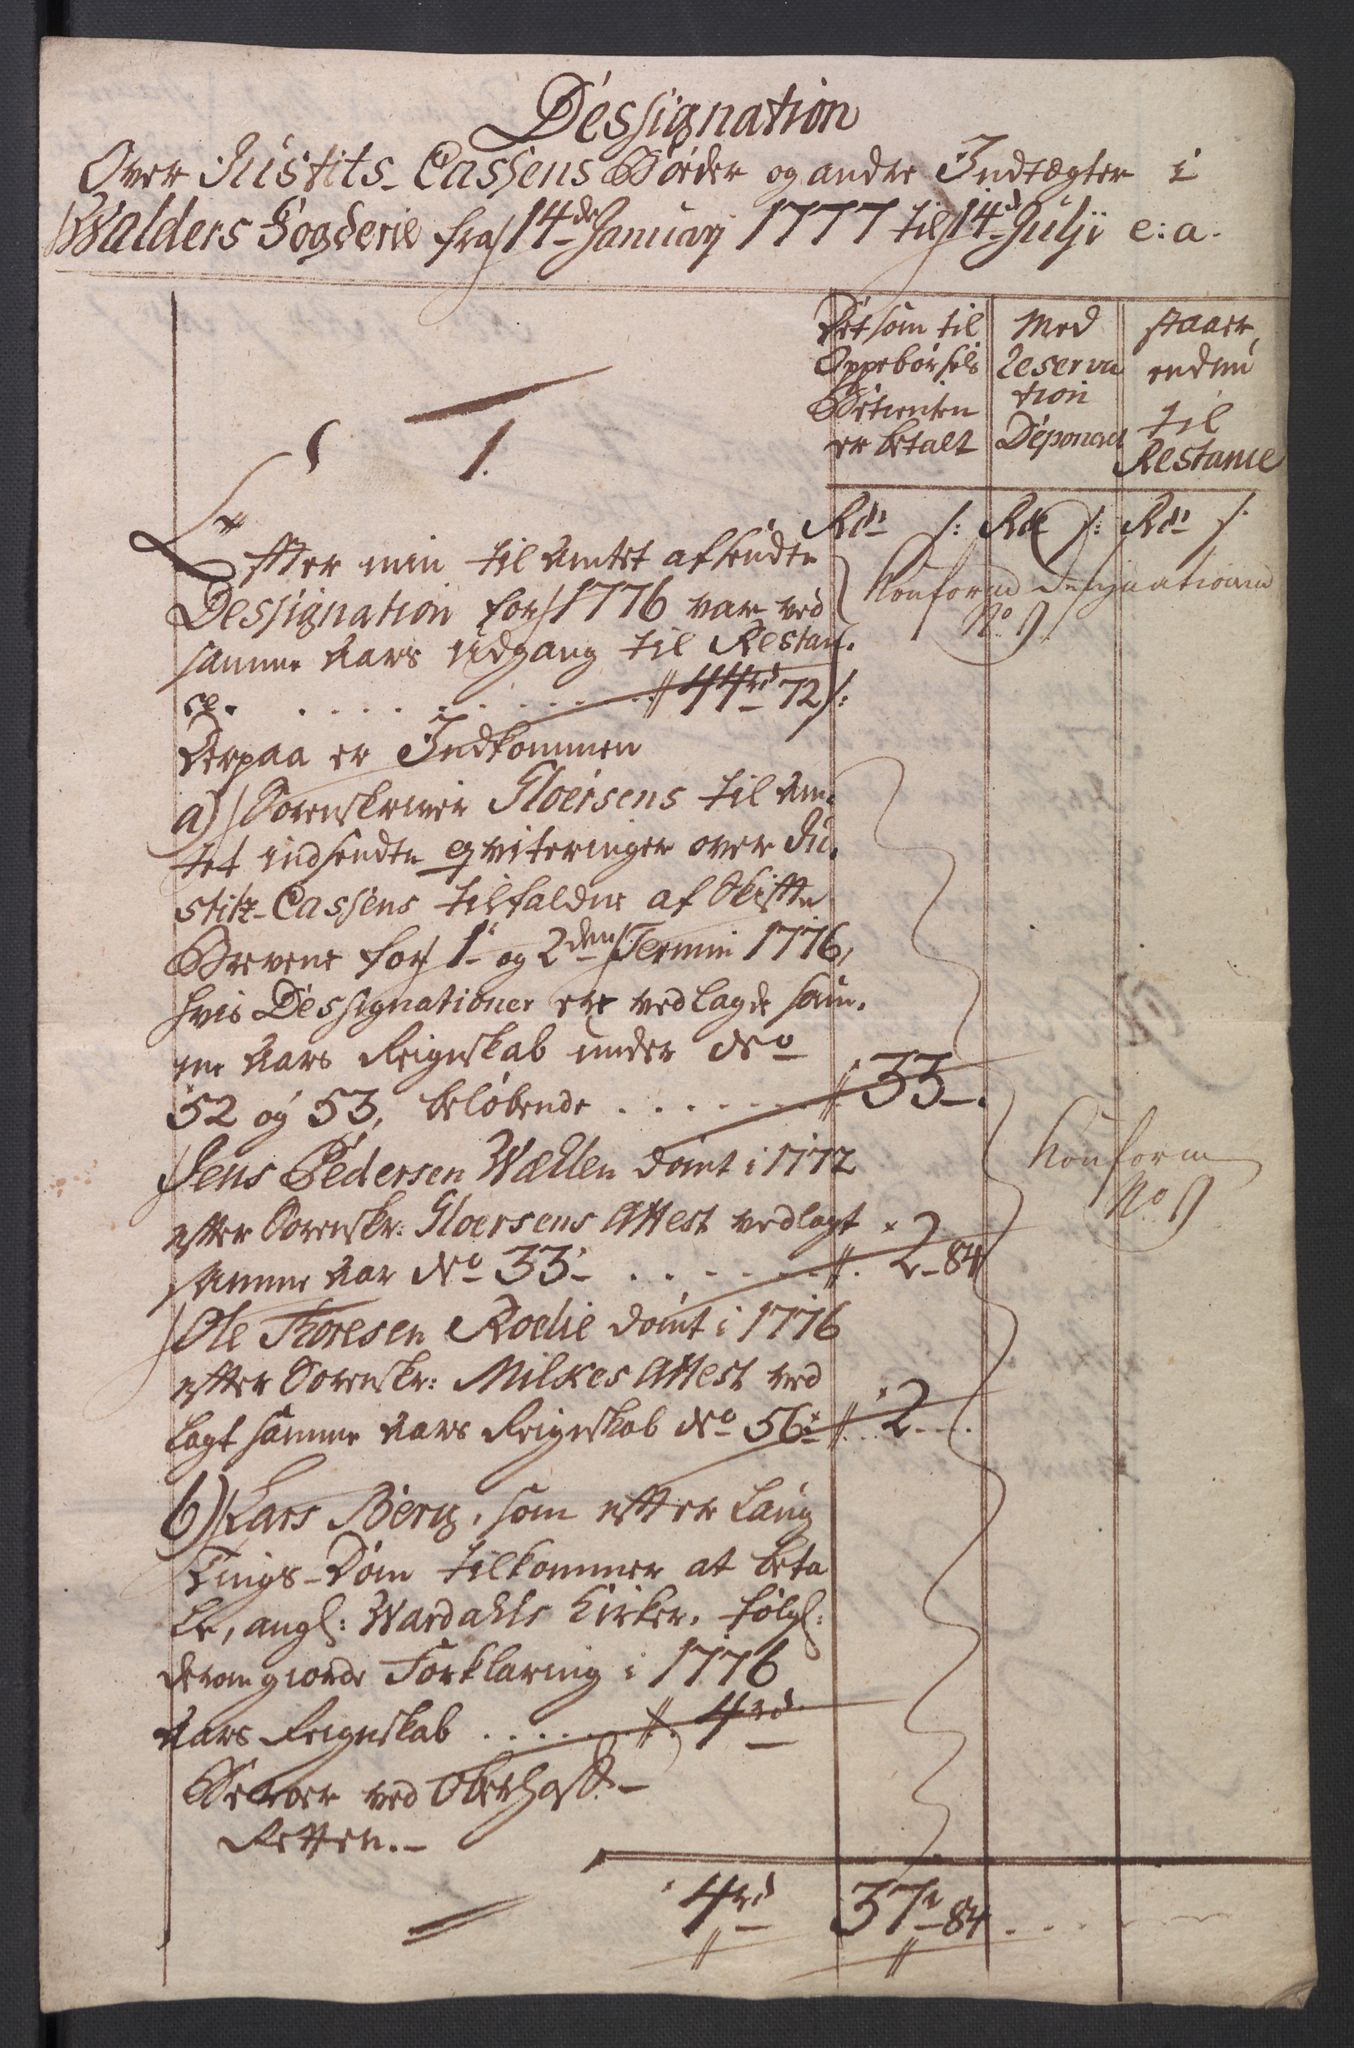 Dessignation
Over Justits-Cassens Bøeder og andre Indtægter i
Walders Fogderie fra 14de Januarj 1777 til 14d Julji e: a.
Det som til
Oppebørsels
Betienten
er betalt
Med
Reserva
tion
Deponert
staaer
endnu
til
Restance
Rdr s: Rdr s: Rdr s:
1.
Efter min til Amtet afsendte
Dessignation for 1776 var ved
samme Aars Udgang til Restan-
ce. . . . . . . . . 44rd 72 s:
Konform Designationen
No 9.
Derpaa er Indkommen
a) Sorenskriver Gloersens til Am-
tet indsendte qviteringer over Ju-
stitz-Cassens tilfaldne af Skifte
Brevene for 1te og 2den Termin 1776,
hvis Dessignationer ere vedlagde sam-
me Aars Reignskab under No
52 og 53, beløbende . . . . . . 33 -
Jens Pedersen Wædlen dømt i 1772
efter Sorenskr: Gloersens Attest vedlagt
samme Aar No 33 - . . . . . . 2 - 84
Konform
No 9
Ole Thoresen Rodie dømt i 1776
efter Sorenskr: Milkes Attest ved
lagt samme Aars Reignskab No 56 . . 2 - . .
b) Lars Berg, som efter Laug
Tings-Dom tilkommer at beta
le, angl: Wardahls Kirke, følgl:
derom giorde Forklaring i 1776
Aars Reignskab . . . . . . 4rd
Beroer ved Oberhoff-
Retten. -
4rd 37r - 84 . . . .